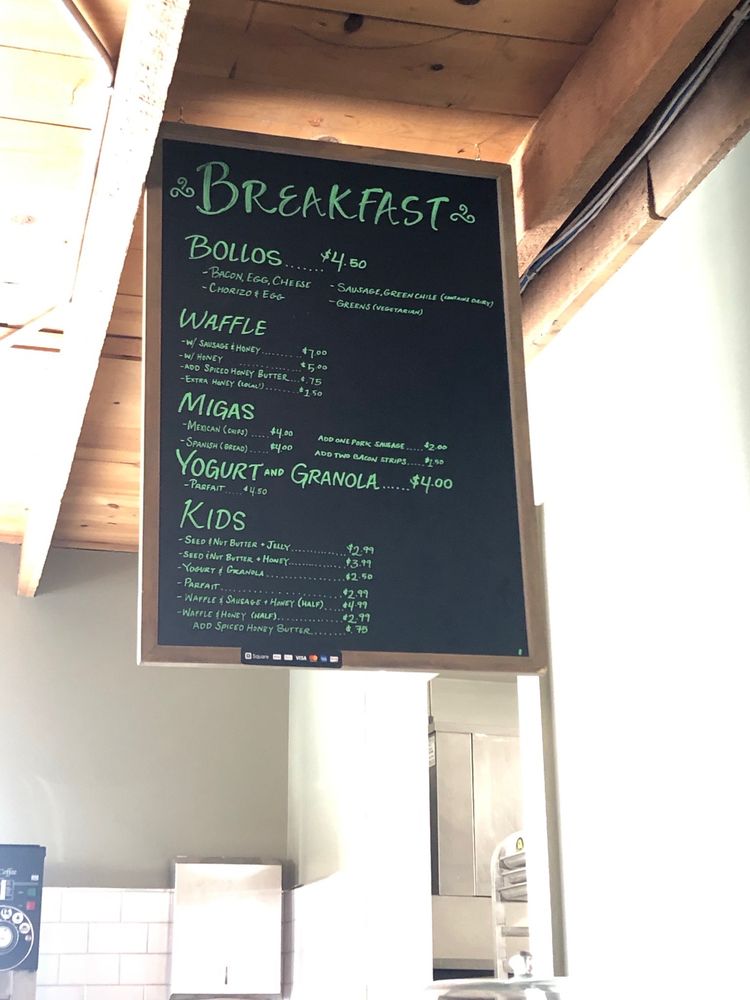 BREAKFAST
BOLLOS.......$4.50
-BACON, EGG, CHEESE
-SAUSAGE, GREEN CHILE (CONTAINS DAIRY)
-CHORIZO & EGG
-GREENS (VEGETARIAN)
WAFFLE
-W/ SAUSAGE & HONEY..........$7.00
-W/ HONEY ..............$5.00
-ADD SPICED HONEY BUTTER...$.75
-EXTRA HONEY (LOCAL!)........$1.50
MIGAS
-MEXICAN (CHIPS) .....$4.00
ADD ONE PORK SAUSAGE.....$2.00
-SPANISH (BREAD).....$4.00
ADD TWO BACON STRIPS.....$1.50
YOGURT AND GRANOLA.....$4.00
-PARFAIT.....$4.50
KIDS
-SEED & NUT BUTTER + JELLY..............$2.99
-SEED & NUT BUTTER + HONEY..............$3.99
-YOGURT & GRANOLA....................$2.50
-PARFAIT..............................$2.99
-WAFFLE & SAUSAGE + HONEY (HALF)....$4.99
-WAFFLE & HONEY (HALF)................$2.99
ADD SPICED HONEY BUTTER........$.75
Square VISA
Coffee